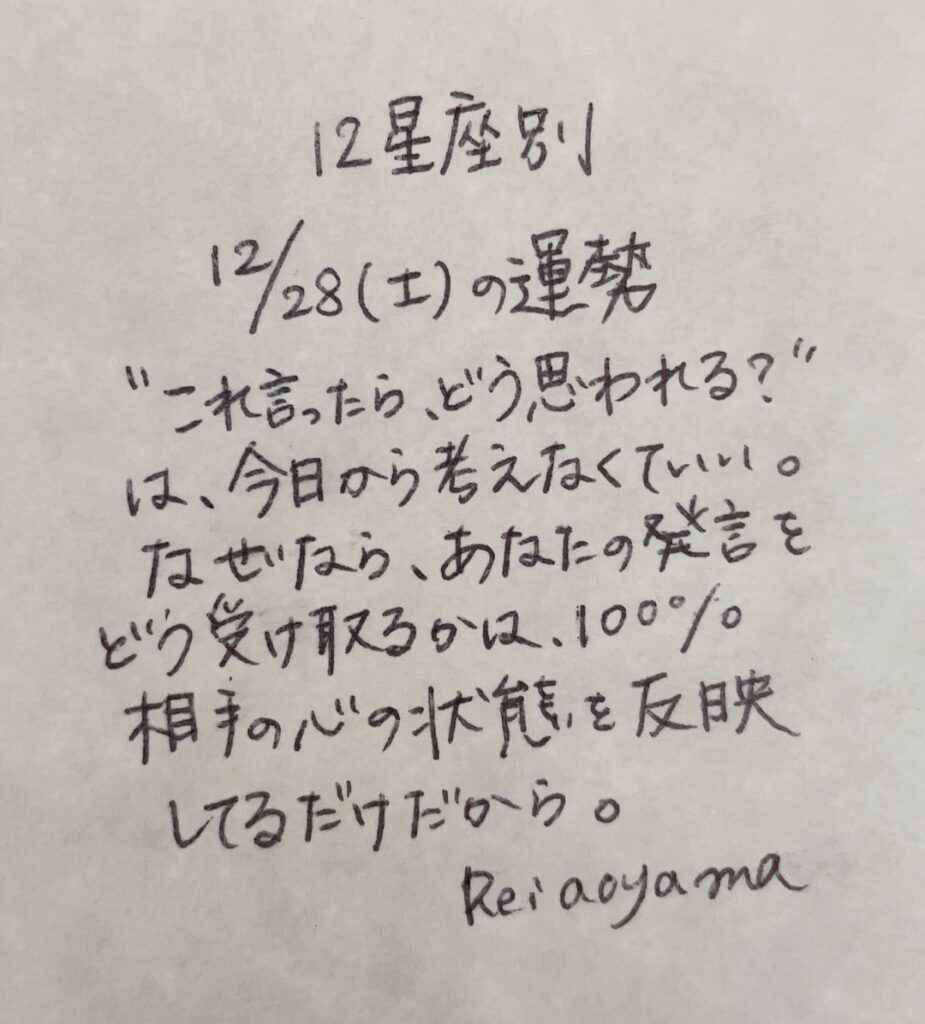 12星座別
12/28(土)の運勢
"これ言ったら、どう思われる?"
は、今日から考えなくていい。
なぜなら、あなたの発言を
どう受け取るかは、100%
相手の心の状態を反映
してるだけだから。
Rei aoyama